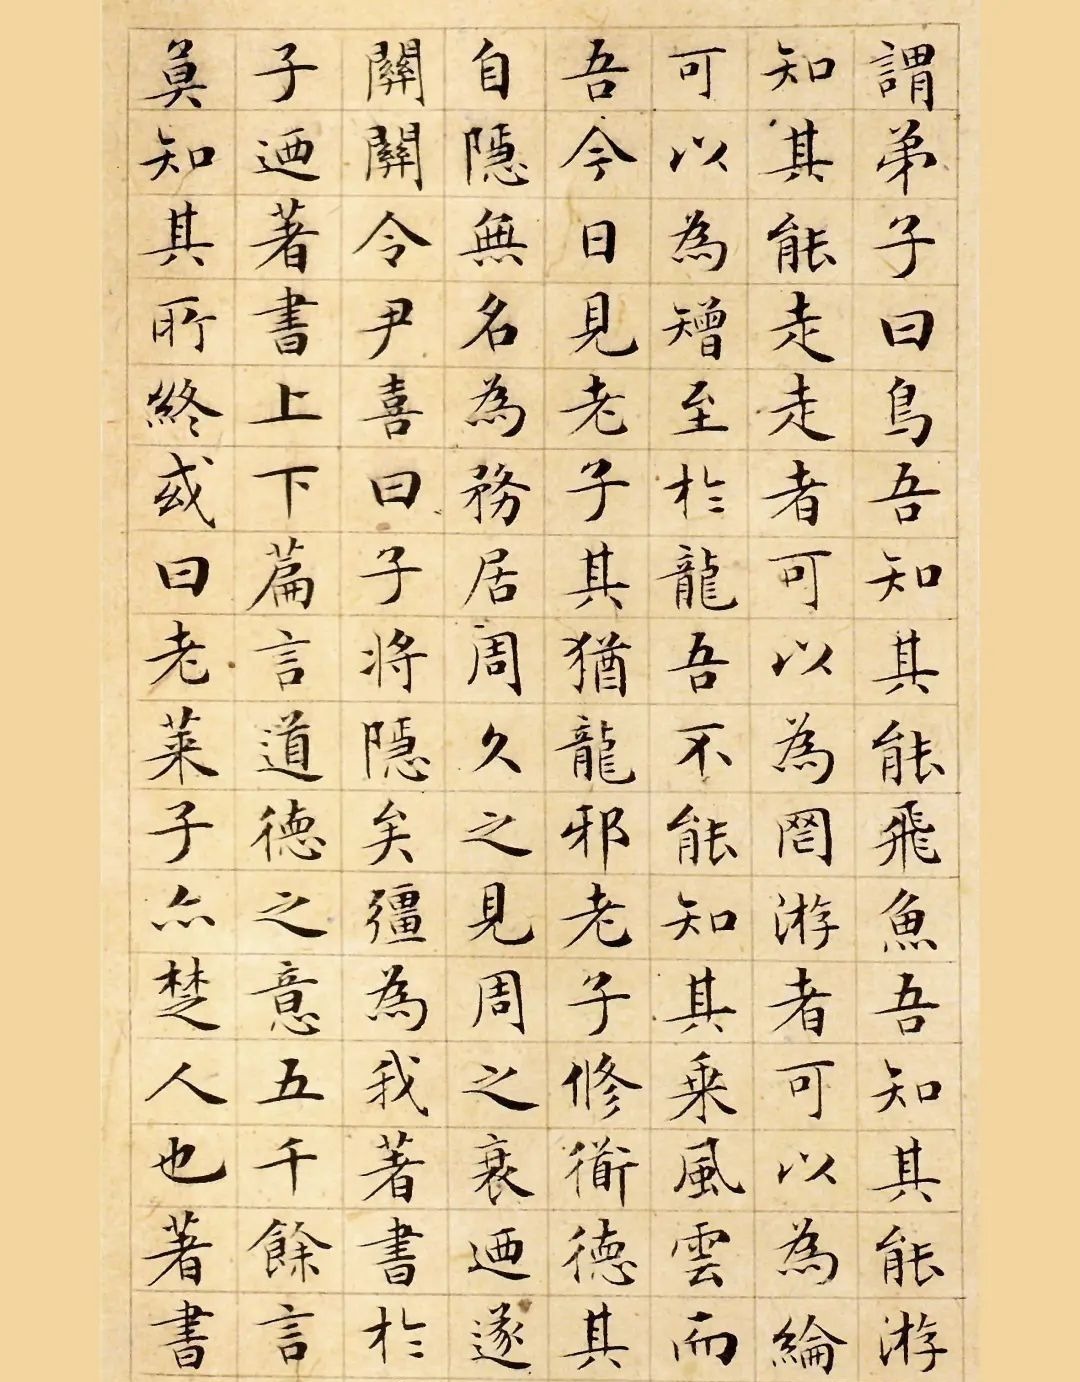 謂弟子曰鳥吾知其能飛魚吾知其能游
知其能走走者可以為罔游者可以為綸
可以為矰至於龍吾不能知其乗風雲而
吾今日見老子其猶龍邪老子修衜德其
自隱無名為務居周久之見周之衰迺遂
關關令尹喜曰子將隱矣彊為我著書於
子迺著書上下篇言道德之意五千餘言
莫知其所終或曰老莱子亦楚人也著書